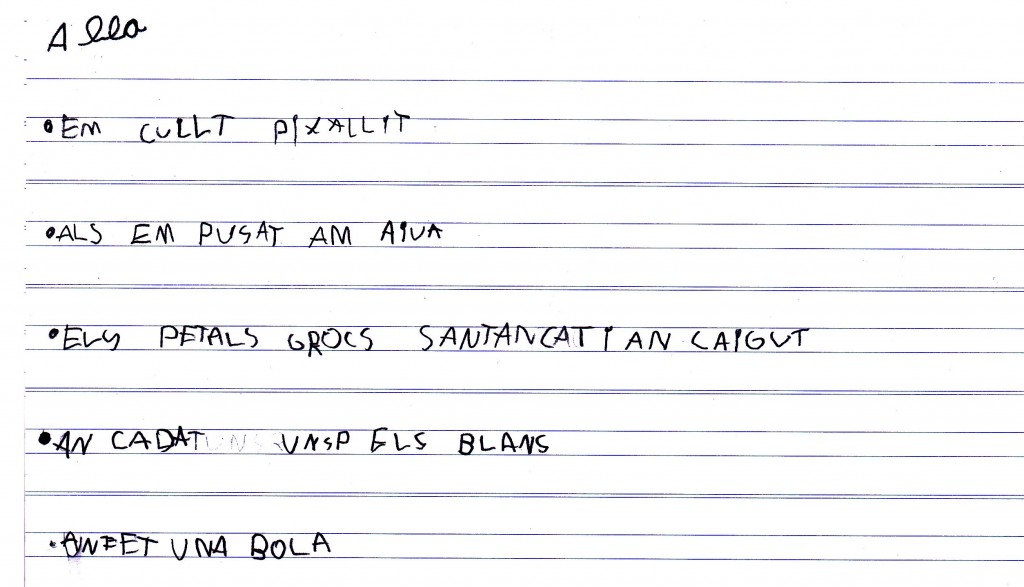 Alba
•EM CULLT PIXALLIT
•ALS EM PUSAT AM AIUA
•ELS PETALS GROCS SANTANCAT I AN CAIGUT
•AN CADAT UNSP ELS BLANS
•ANFET UNA BOLA